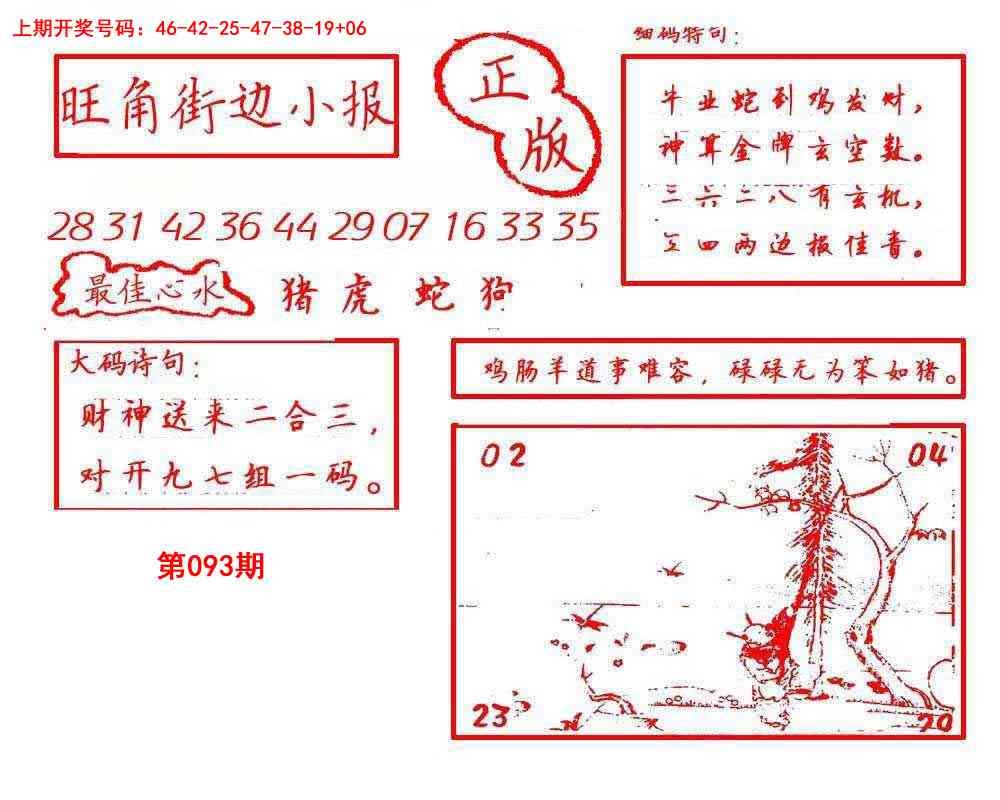 上期开奖号码：46-42-25-47-38-19+06
细码特句：
旺角街边小报
正
版
牛业蛇到鸡发财，
神算金牌玄空数。
三六二八有玄机，
四两边报佳音。
28 31 42 36 44 29 07 16 33 35
最佳心水
猪虎蛇狗
大码诗句：
财神送来二合三，
对开九七组一码。
鸡肠羊道事难容，碌碌无为笨如猪。
02
04
23
20
第093期